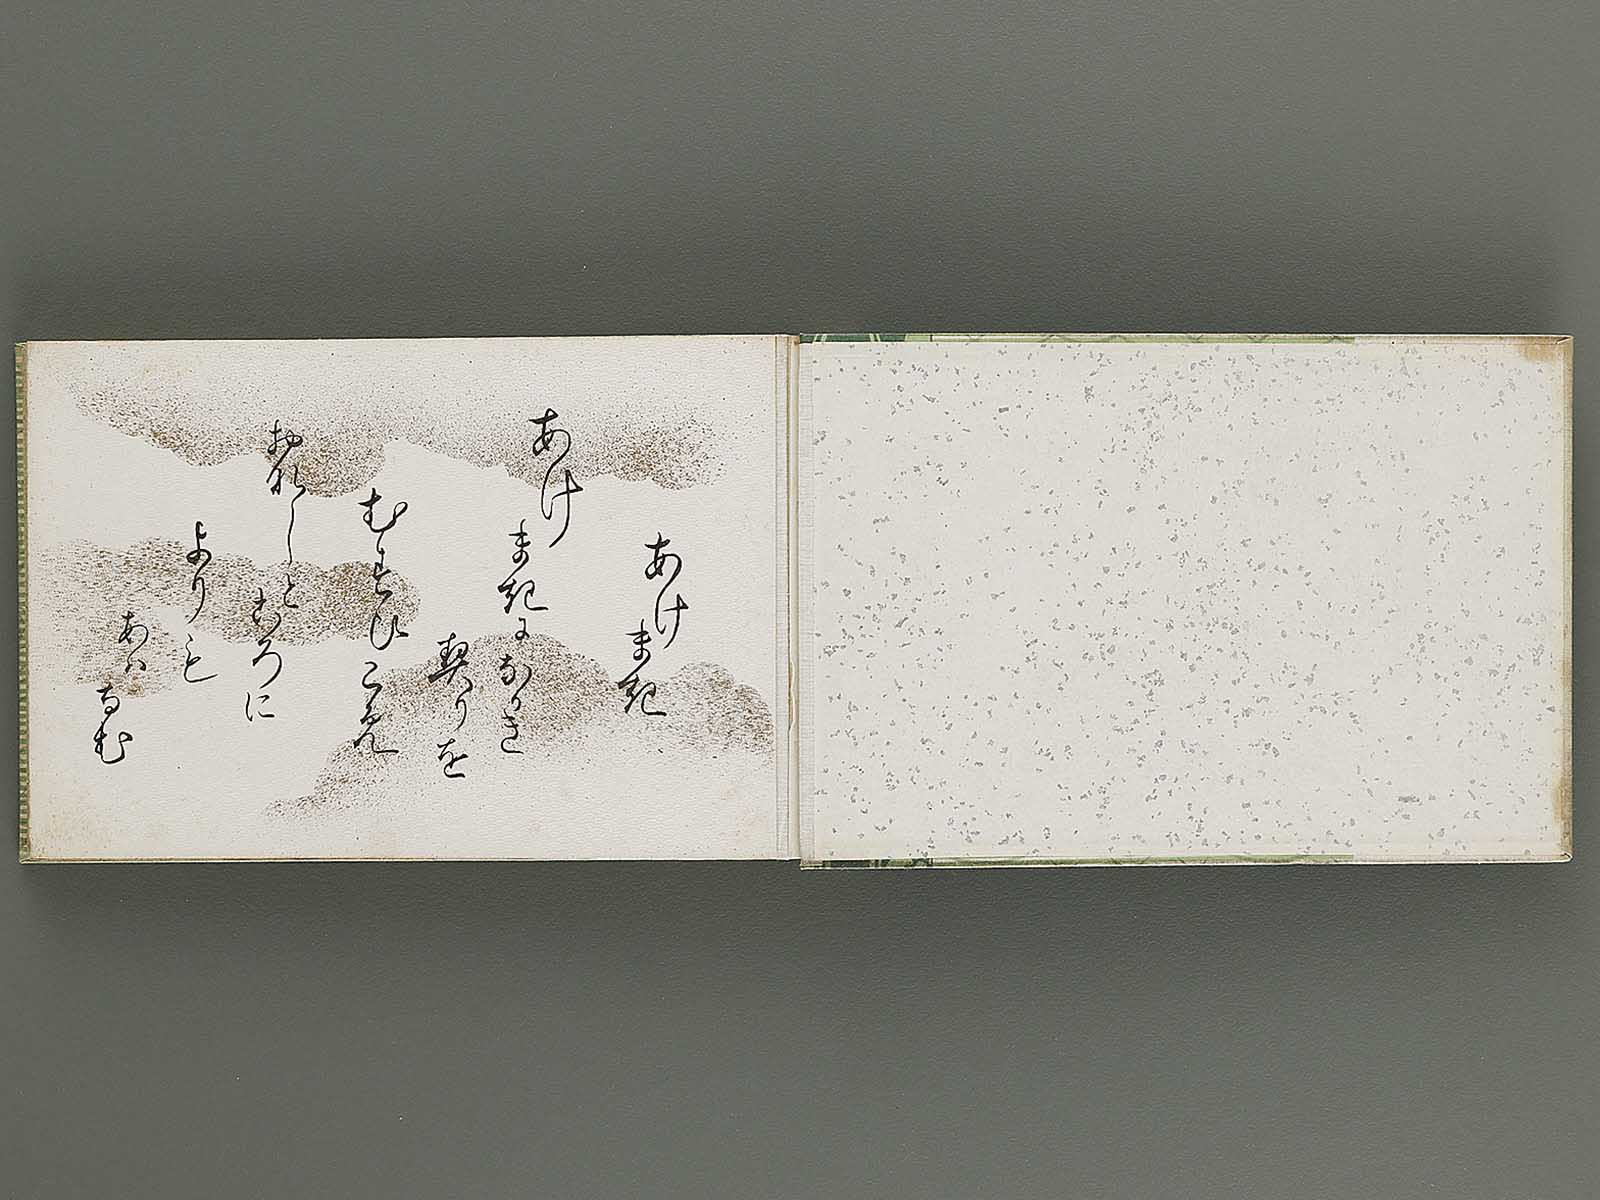 あけまき
あけ
まきになかき
契りを
むすひこめ
おなしところに
よりも
あはなむ